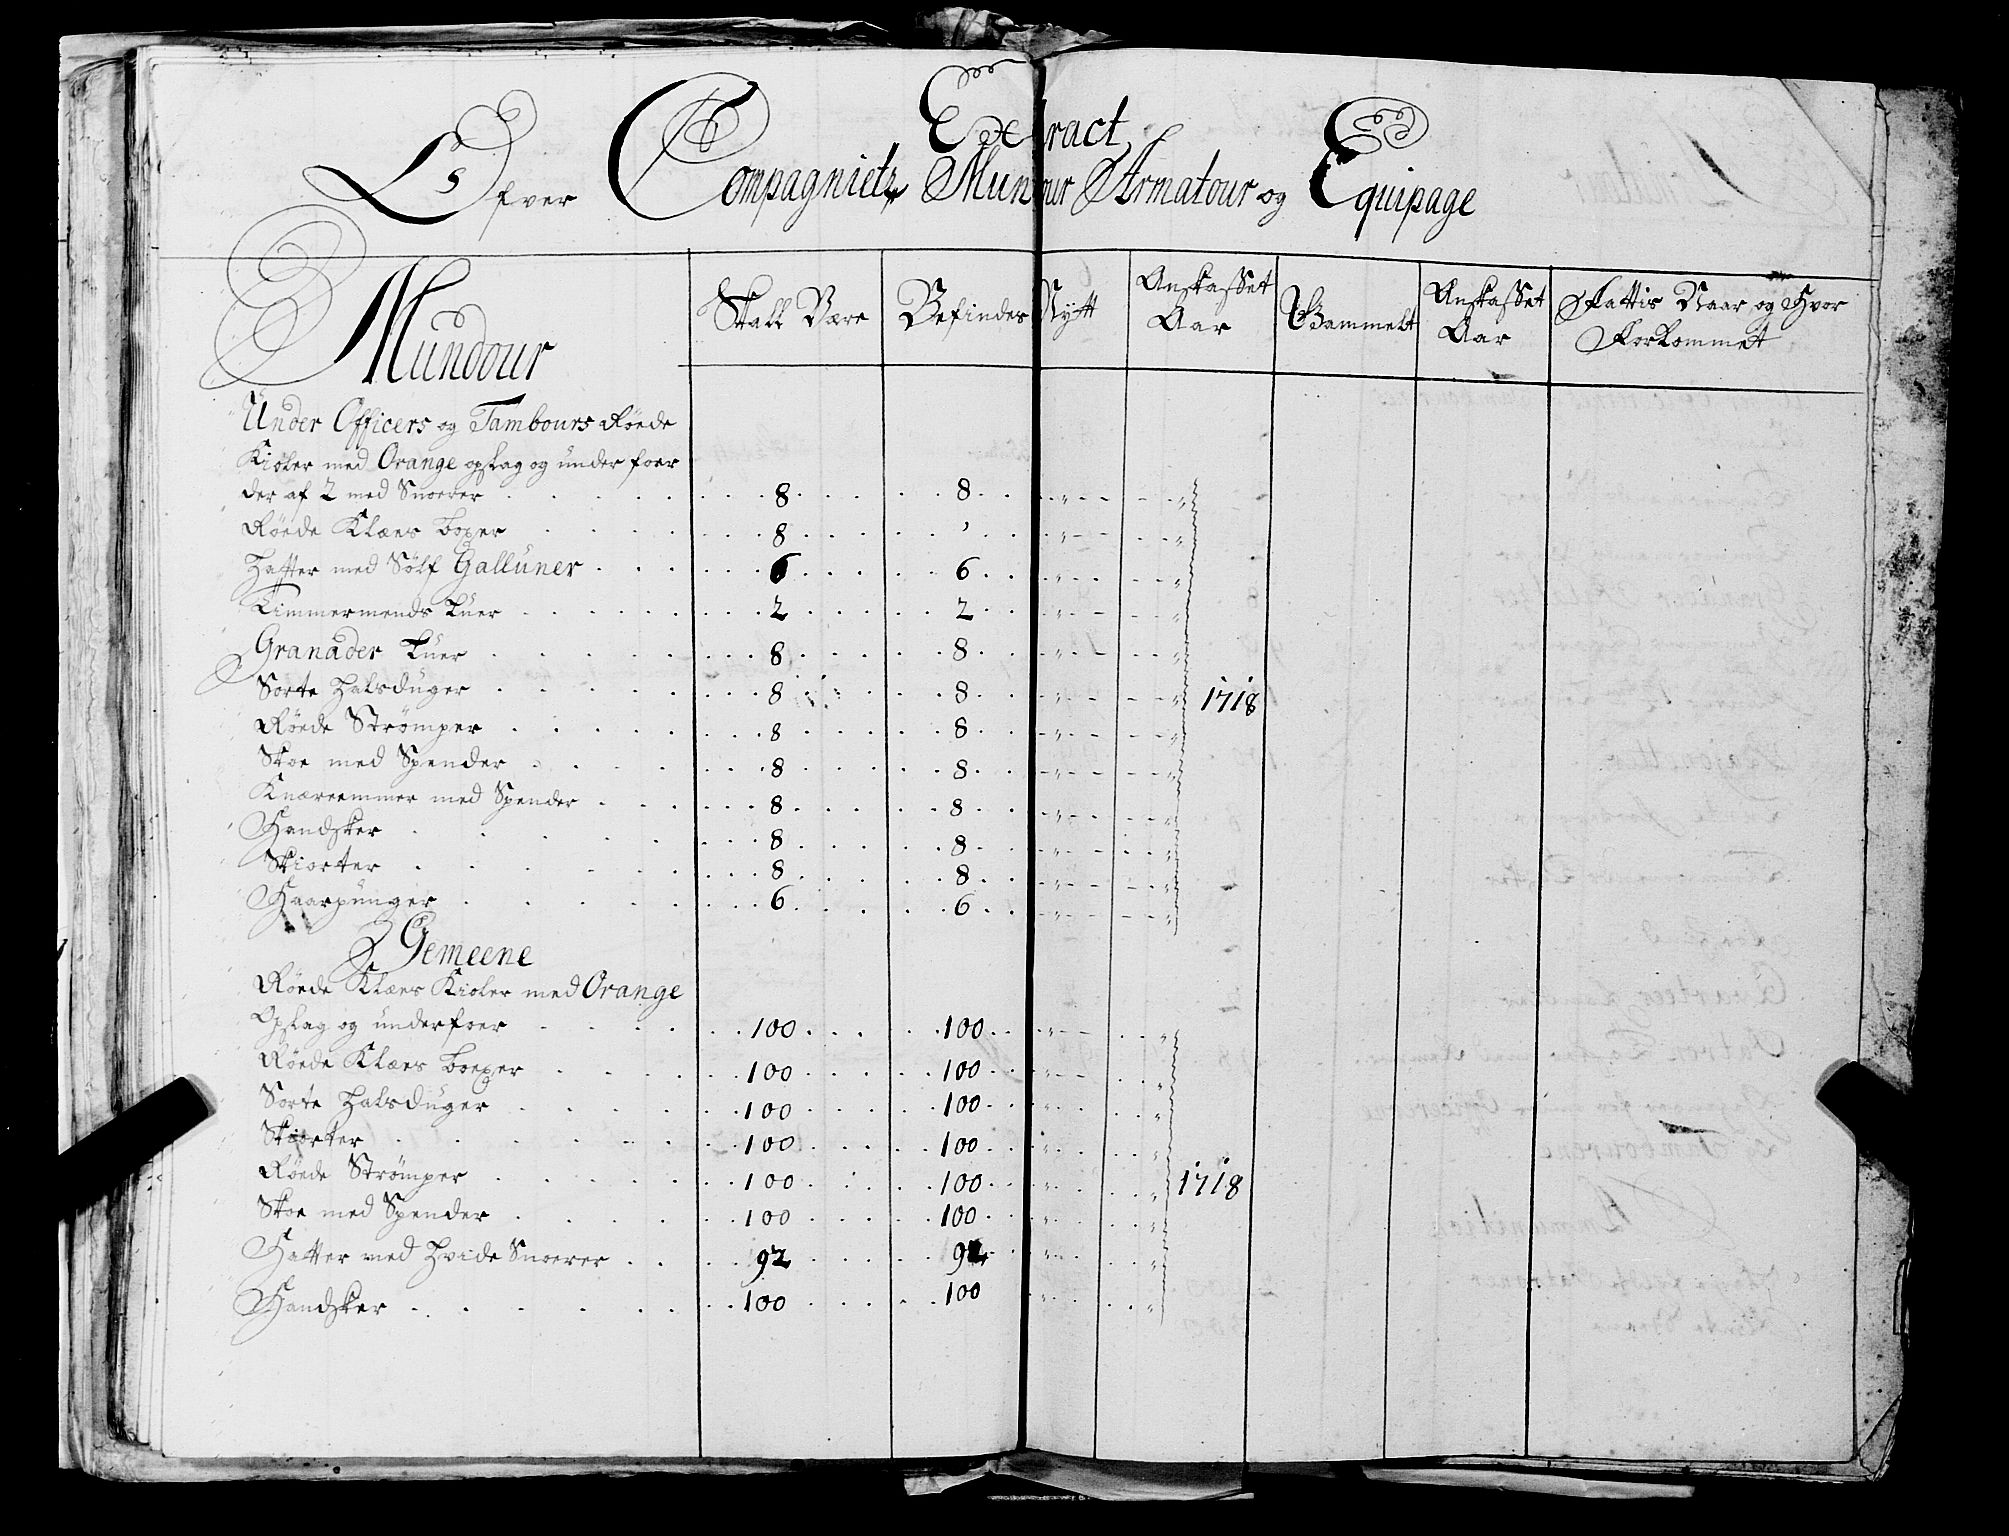 Extract
Ofver Compagniets Mundour Armatour og Equipage
Mundour
Skall Være
Befindes
Nytt
Anskaffet Aar
Gammelt
Anskaffet Aar
Fattis Naar og Hvor Forkommet
Under Officers og Tambours Röede
Kioler med Orange opslag og under foer
der af 2 med Snoerer 8 8 "
Röede Klæes boxer 8 "
Hatter med Sölf Gallüner 6 6 "
Timmermends Luer 2 2 "
Granader Luer 8 8 "
Sorte Halsdüger 8 8 " 1718
Röede Strømper 8 8 "
Skoe med Spender 8 8 "
Knæreemmer med Spender 8 8 "
Handsker 8 8 "
Skiorter 8 8 "
Haarpünger 6 6 "
Gemeene
Röede Klæes Kioler med Orange
Opslag og underfoer 100 100 "
Röede Klæes boexer 100 100 "
Sorte Halsdüger 100 100 "
Skiorter 100 100 "
Röede Strømper 100 100 " 1718
Skoe med Spender 100 100 "
Hatter med Hvide Snoerer 92 92 "
Handsker 100 100 "